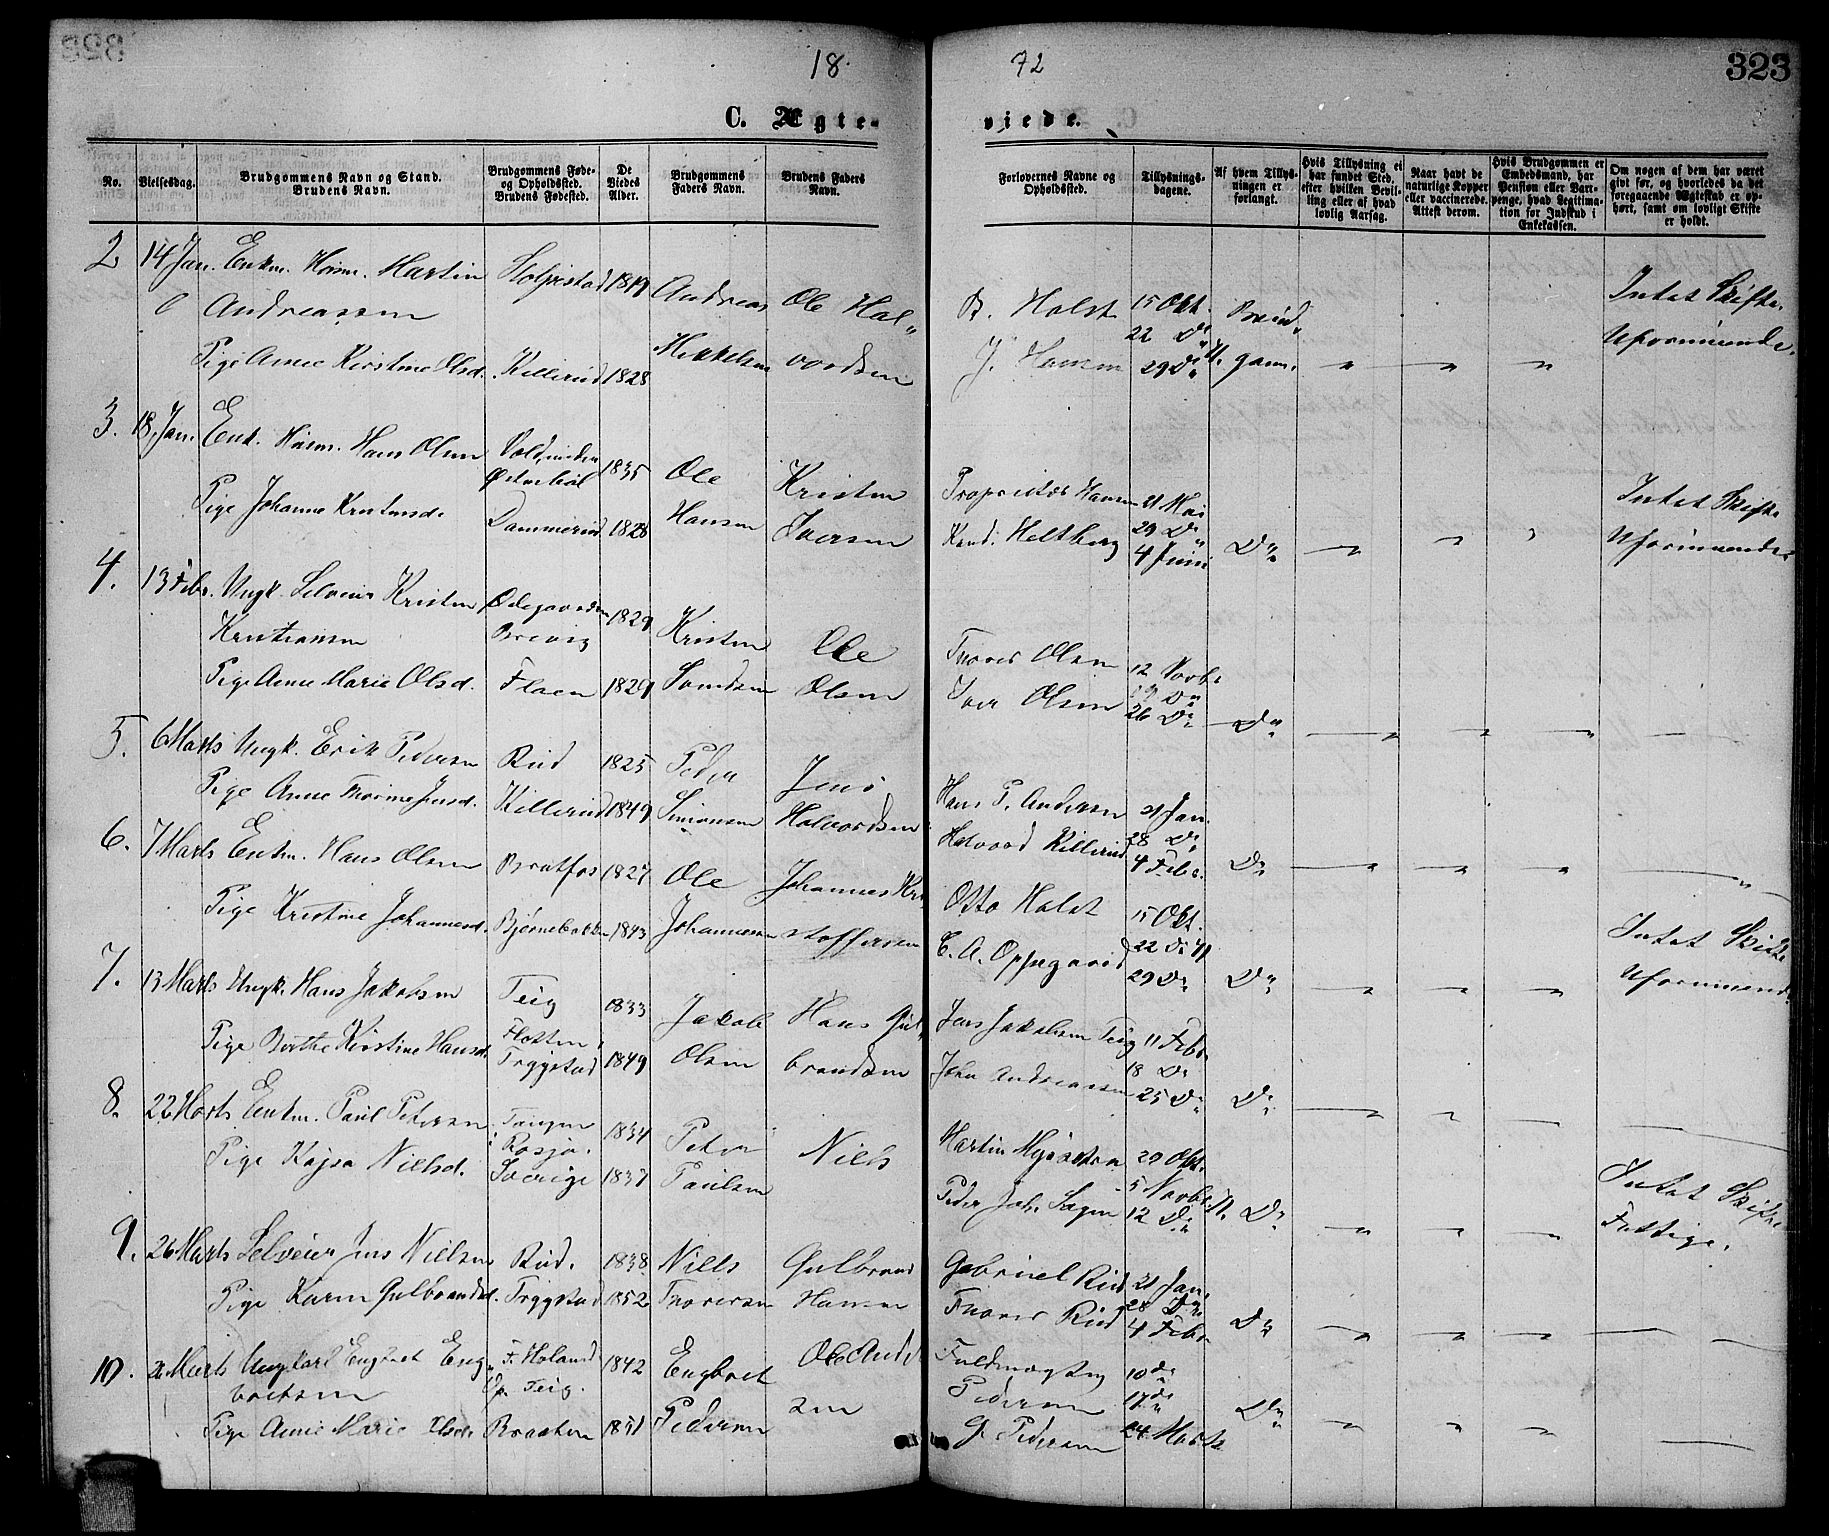 18 72
323
C. Ægteviede.
No.
Vielsesdag.
Brudgommens Navn og Stand.
Brudens Navn.
Brudgommens Føde-
og Opholdssted.
Brudens Fødested.
De
Viedes
Alder.
Brudgommens
Faders Navn.
Brudens Faders
Navn.
Forlovernes Navne og
Opholdssted.
Tillysnings-
dagene.
Af hvem Tillys-
ningen er
forlangt.
Hvis Tillysning ei
har fundet Sted,
efter hvilken Bevil-
ling eller af hvad
lovlig Aarsag.
Naar havt de
naturlige Kopper
eller vaccinerede.
Attest derom.
Hvis Brudgommen er
Embedsmand, har
Pension eller Vart-
penge, hvad Legitima-
tion for Indskud i
Enkekassen.
Om nogen af dem har været
givt før, og hvorledes da det
foregaaende Ægteskab er op-
hørt, samt om lovligt Skifte
er holdt.
2 14 Jan. Enkm. Husm. Martin
Andreassen
Pige Anne Kirstine Olsd. Killerud 1828
Andreas
Mikkelsen
Ole Hal"
vordsen
B. Holst
J. Hansen
15 Okt.
22 D°
29 D°
Intet Skifte
Uformuende.
3. 18 Jan. Enk. Husm. Hans Olsen 1835
Pige Johanne Kristensd. Dammerud 1828
Ole
Hansen
Kristen
Iversen
Proprietær Hansen
Kand. Heltberg
21 Mai
29 D°
4 Juni
D°
Intet Skifte
Uformuende
4. 13 Febr. Ungk. Selveier Kristen
Kristiansen
Ødegaarden
Brevig
1829
Pige Anne Marie Olsd. Flaen 1829
Kristen
Ole
Olsen
Thorer Olsen
Iver Olsen
12 Novbr
19 D°
26 D°
D°
5. 6 Marts Ungk. Erik Pedersen Rud 1825
Pige Anne Thorine Jensd. Killerud 1849
Peder
Simonsen
Jens
Halvordsen
Hans P. Andersen
Halvord Killerud
21 Jan.
28 D°
4 Febr.
D°
6. 7 Marts Enkm. Hans Olsen Bratfos 1827
Pige Kristine Johannesd. Bjørnebakken 1843
Ole
Johannesen
Johannes Kri
stoffersen
Otto Holst
C. A. Oppegaard
15 Okt.
22 D° 71
29 D°
D°
Intet Skifte
Uformuende
7. 13 Marts Ungk. Hans Jakobsen Teig 1833
Pige Berthe Kirstine Hansd. Trygstad 1849
Jakob
Olsen
Hans Gul"
brandsen
Jens Jakobsen Teig
John Andreassen
11 Febr
18 D°
25 D°
D°
8. 22 Marts Enkm. Paul Petersen Tangen
i Rasjø. 1834
Pige Kajsa Nielsd. Sverige 1837
Peter
Paulsen
Niels
Martin
Peder Joh. Sagen
29 Okt.
5 Novbr. 71.
12 D°
D°
Intet Skifte
Fattige.
9. 26 Marts Selveier Jens Nielsen Rud. 1838
Pige Karen Gulbrandsd. Trygstad 1852
Niels
Thoresen
Gulbrand
Hansen
Gabriel Rud
Thorer Rud
21 Jan.
28 D°
4 Febr
D°
10. 26 Marts Ungkarl Engbret Eng
bretsen
F. Høland
Op. Teig.
1842
Pige Anne Marie Olsd. Braaten 1851
Engbret
Pedersen
Ole Ander
sen
Fuldmægtig
Pedersen
G. Pedersen
10 d°
17 d°
24 Marts
D°